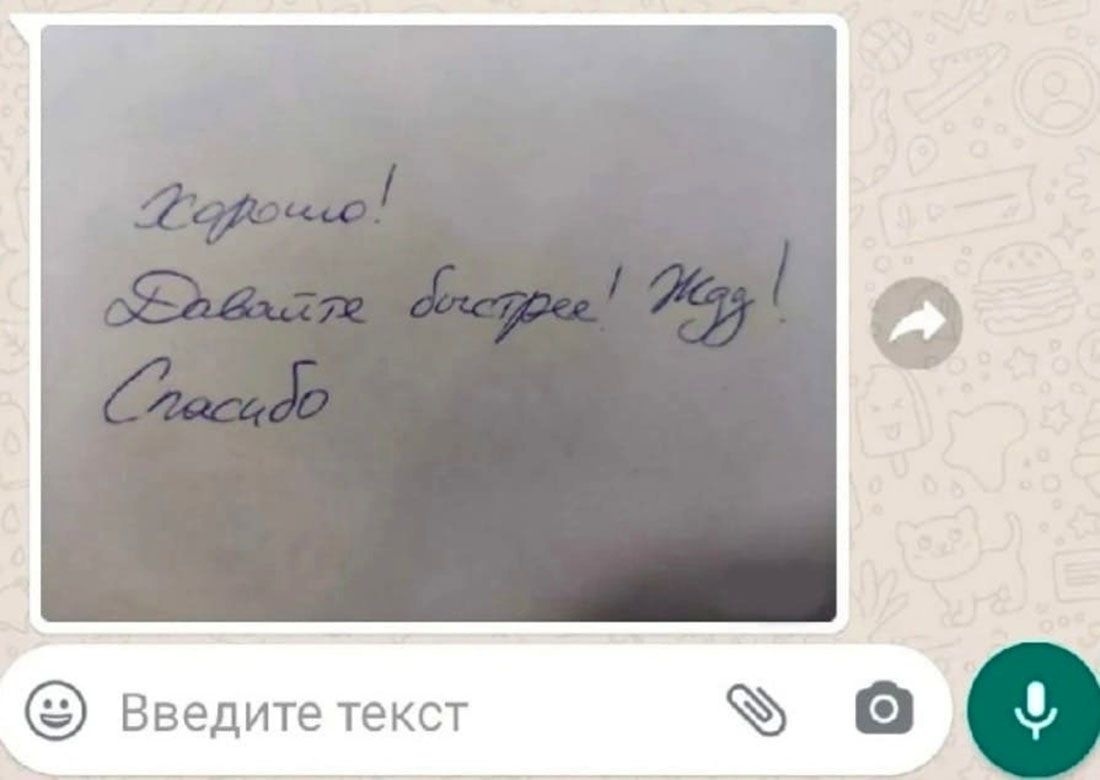 Хорошо!
Давайте быстрее! Жду!
Спасибо
Введите текст